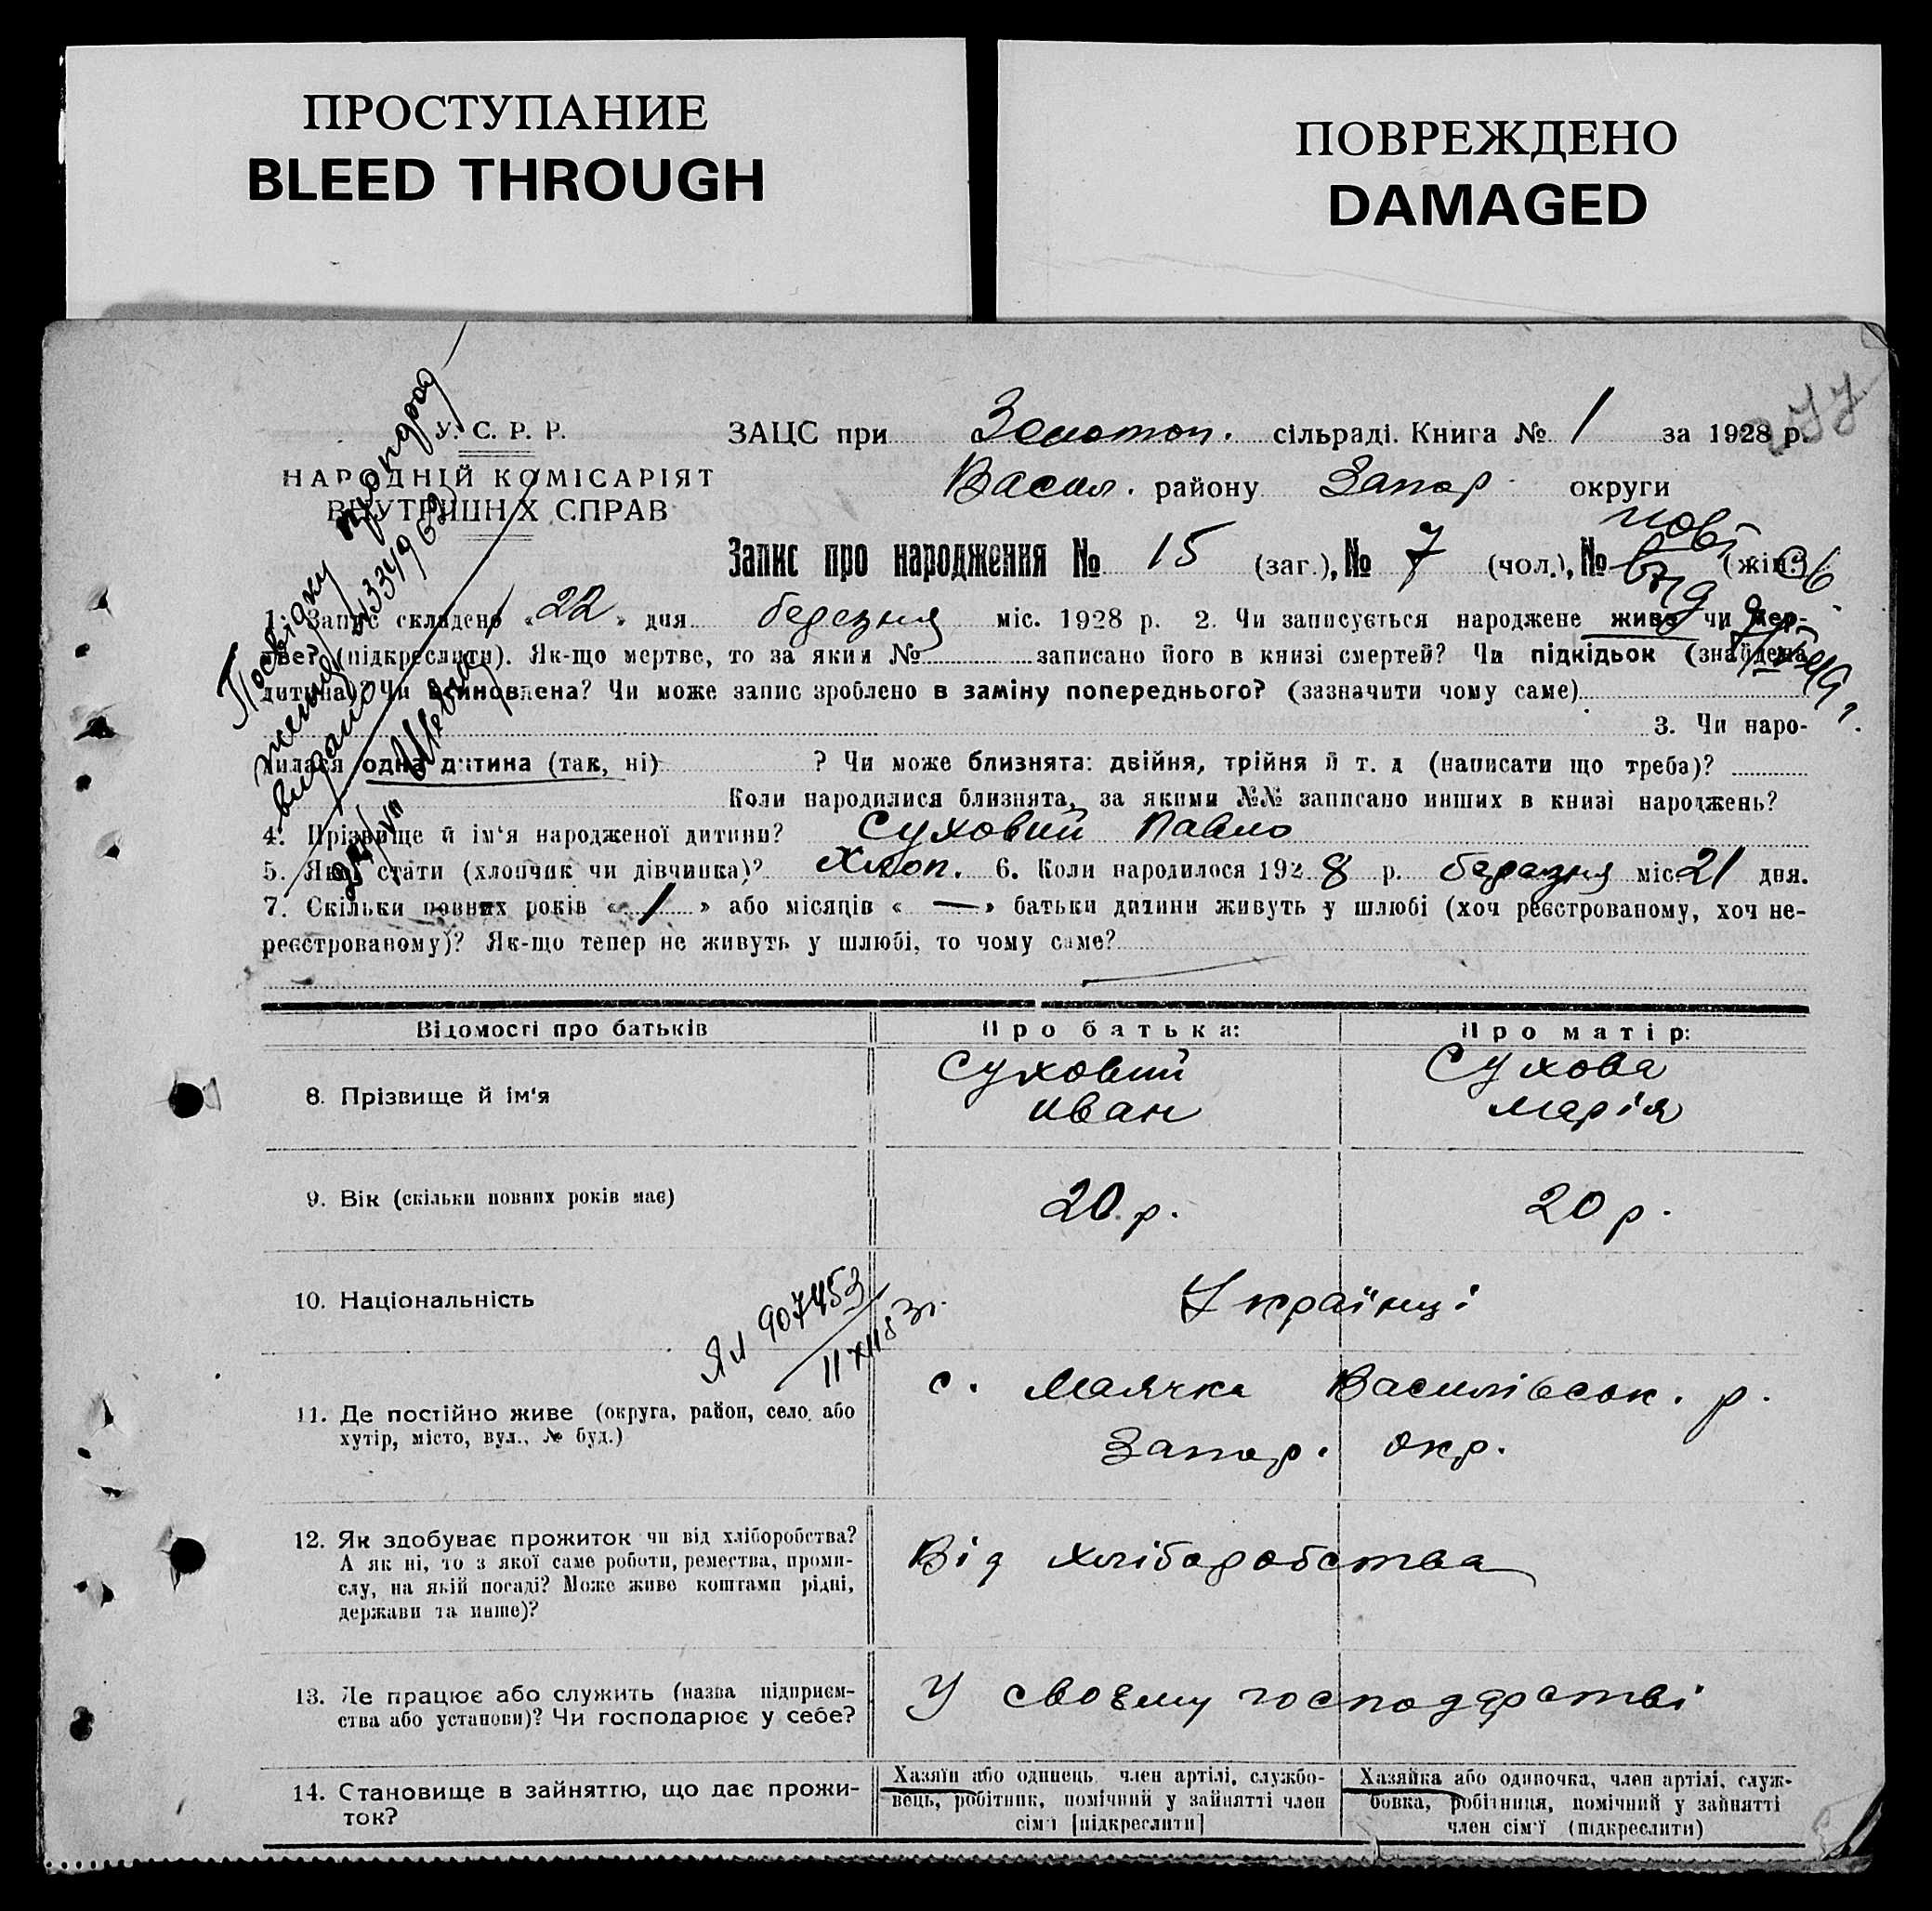 ПРОСТУПАНИЕ
BLEED THROUGH
ПОВРЕЖДЕНО
DAMAGED
У. С. Р. Р.
НАРОДНІЙ КОМІСАРІЯТ
ВНУТРІШНІХ СПРАВ
ЗАЦС при Золотоп. сільраді. Книга № 1 за 1928 р.
Васил. району Запор. округи
Запис про народження № 15 (заг.), № 7 (чол.), № (жін.)
1. Запис складено «22» дня березня міс. 1928 р. 2. Чи записується народжене живе чи мер-
тве? (підкреслити). Як-що мертве, то за яким № записано його в книзі смертей? Чи підкідьок (знайдена
дитина)? Чи всиновлена? Чи може запис зроблено в заміну попереднього? (зазначити чому саме)
3. Чи наро-
дилася одна дитина (так, ні) ? Чи може близнята: двійня, трійня й т. д (написати що треба)?
Коли народилися близнята, за якими №№ записано инших в книзі народжень?
4. Прізвище й ім'я народженої дитини? Суховий Павло
5. Якої стати (хлопчик чи дівчинка)? Хлоп. 6. Коли народилося 1928 р. березня міс. 21 дня.
7. Скільки повних років «1» або місяців «—» батьки дитини живуть у шлюбі (хоч реєстрованому, хоч не-
реєстрованому)? Як-що тепер не живуть у шлюбі, то чому саме?
Відомості про батьків Про батька: Про матір:
8. Прізвище й ім'я Суховий Иван Сухова Марія
9. Вік (скільки повних років має) 20 р. 20 р.
10. Національність Українці
907453
11. Де постійно живе (округа, район, село або
хутір, місто, вул., № буд.)
с. Маячка Василівськ. р.
Запор. окр.
12. Як здобуває прожиток чи від хліборобства?
А як ні, то з якої саме роботи, ремества, проми-
слу, на якій посаді? Може живе коштами рідні,
держави та инше)?
Від хліборобства
13. Де працює або служить (назва підприєм-
ства або установи)? Чи господарює у себе?
У своєму господарстві
14. Становище в зайняттю, що дає прожи-
ток?
Хазяїн або одинець, член артілі, службо-
вець, робітник, помічний у зайнятті член
сім'ї [підкреслити]
Хазяйка або одиночка, член артілі, служ-
бовка, робітниця, помічний у зайнятті
член сім'ї (підкреслити)